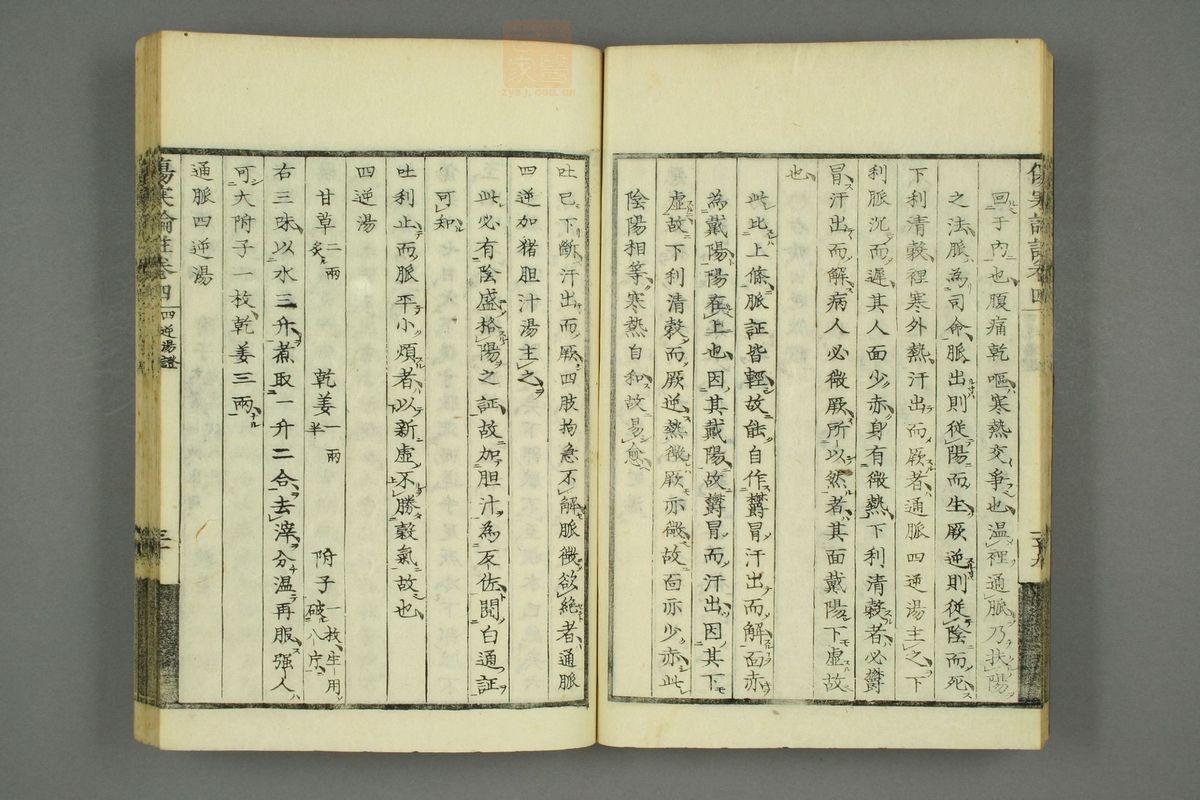 回于內也腹痛乾嘔寒熱交爭也温裡通脈乃扶陽
之法脈為司命脈出則從陽而生厥逆則從陰而死
下利清穀裡寒外熱汗出而厥者通脈四逆湯主之下
利脈沉而遲其人面少赤身有微熱下利清穀者必欝
冒汗出而解病人必微厥所以然者其面戴陽下虛故
也
此比上條脈証皆輕故能自作欝冒汗出而解面赤
為戴陽陽在上也因其戴陽故欝冒而汗出因其下
虛故下利清穀而厥逆熱微厥亦微故面亦少赤此
陰陽相等寒熱自和故易愈
吐已下斷汗出而厥四肢拘急不解脈微欲絶者通脈
四逆加猪胆汁湯主之
此必有陰盛格陽之証故加胆汁為反佐閱白通証
可知
吐利止而脈平小煩者以新虛不勝穀氣故也
四逆湯
甘草二兩炙 乾姜一兩半 附子一枚生用破八片
右三味以水三升煮取一升二合去滓分温再服强人
可大附子一枚乾姜三兩
通脈四逆湯
傷寒論註卷四 四逆湯證